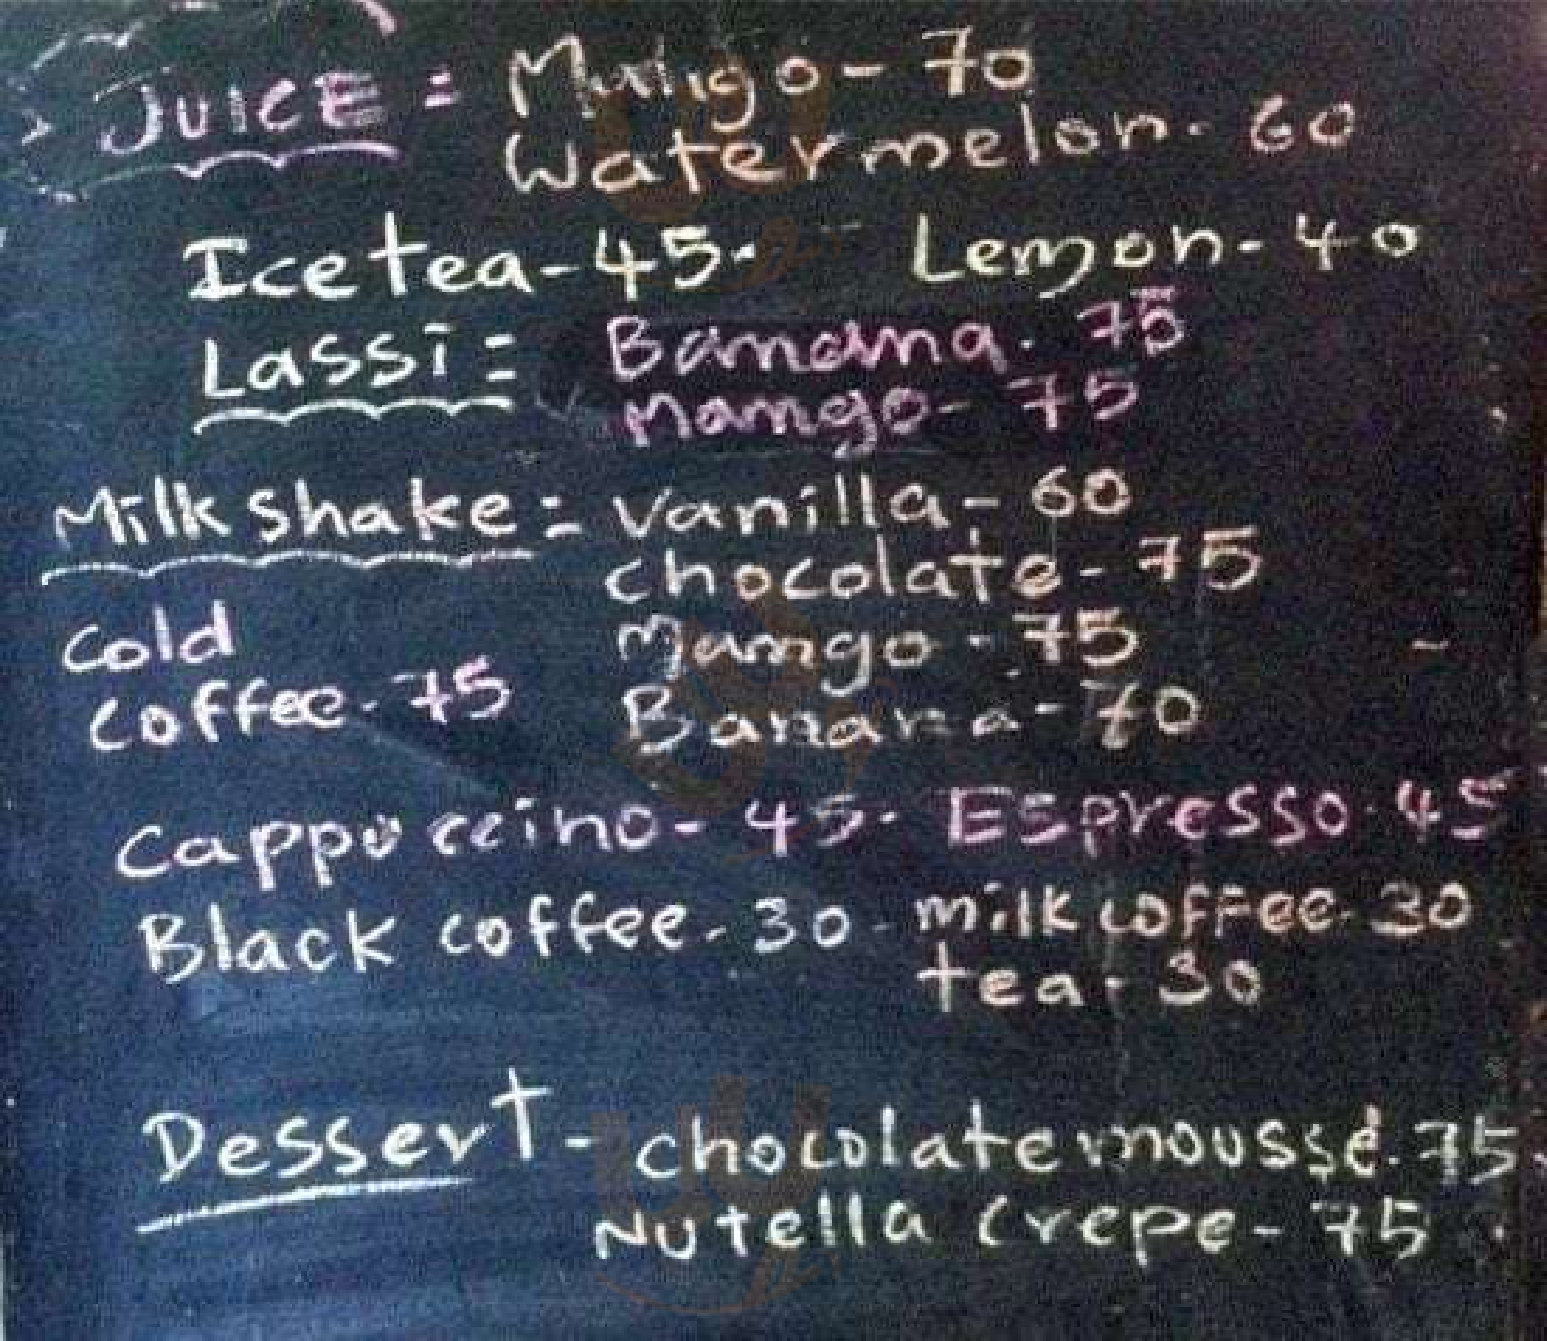 JUICE = Mango - 70
Watermelon - 60
Ice tea - 45. Lemon - 40
Lassi = Banana. 75
Mango - 75
Milk shake = Vanilla - 60
chocolate - 75
Cold Mango - 75
Coffee - 75 Banana - 70
Cappuccino - 45. Espresso. 45
Black coffee. 30 - milk coffee. 30
tea - 30
Dessert - chocolate mousse. 75.
Nutella Crepe - 75